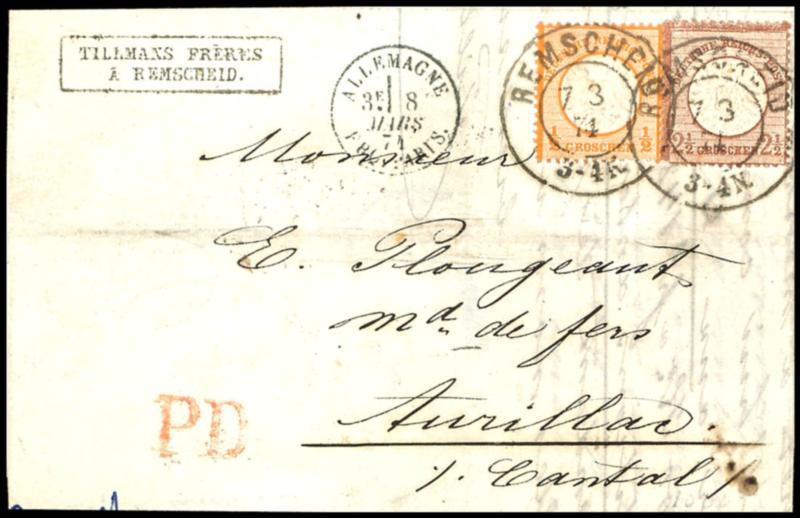 TILLMANS FRÈRES
À REMSCHEID.
ALLEMAGNE
3E 8
MARS
74
REMSCHEID
7 3
74
3-4N.
½ GROSCHEN ½
REMSCHEID
7 3
3-4N.
2½ GROSCHEN 2½
Monsieur
E. Plougeant
md. de fers
Aurillac.
/. Cantal /
PD